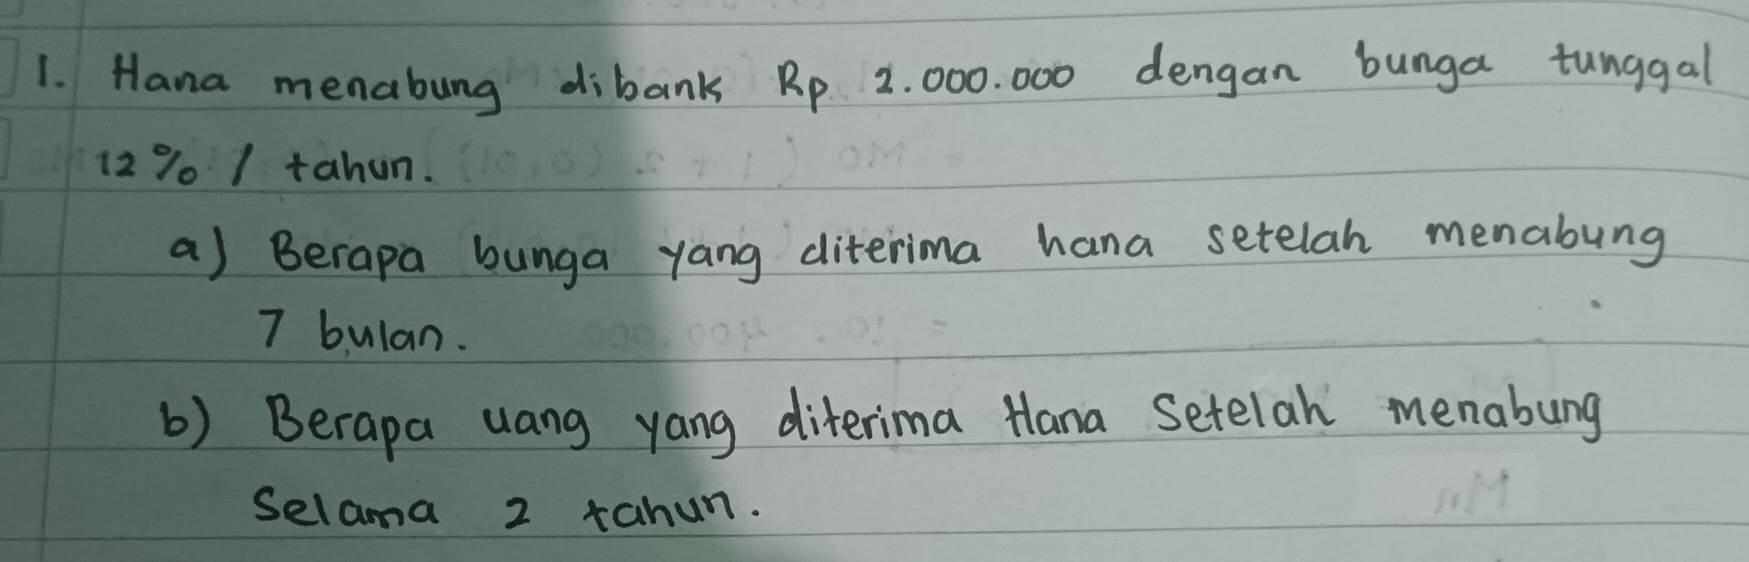 1. Hana menabung dibank Rp. 2.000.000 dengan bunga tunggal
12% / tahun.
a) Berapa bunga yang diterima hana setelah menabung
7 bulan.
b) Berapa uang yang diterima Hana setelah menabung
Selama 2 tahun.